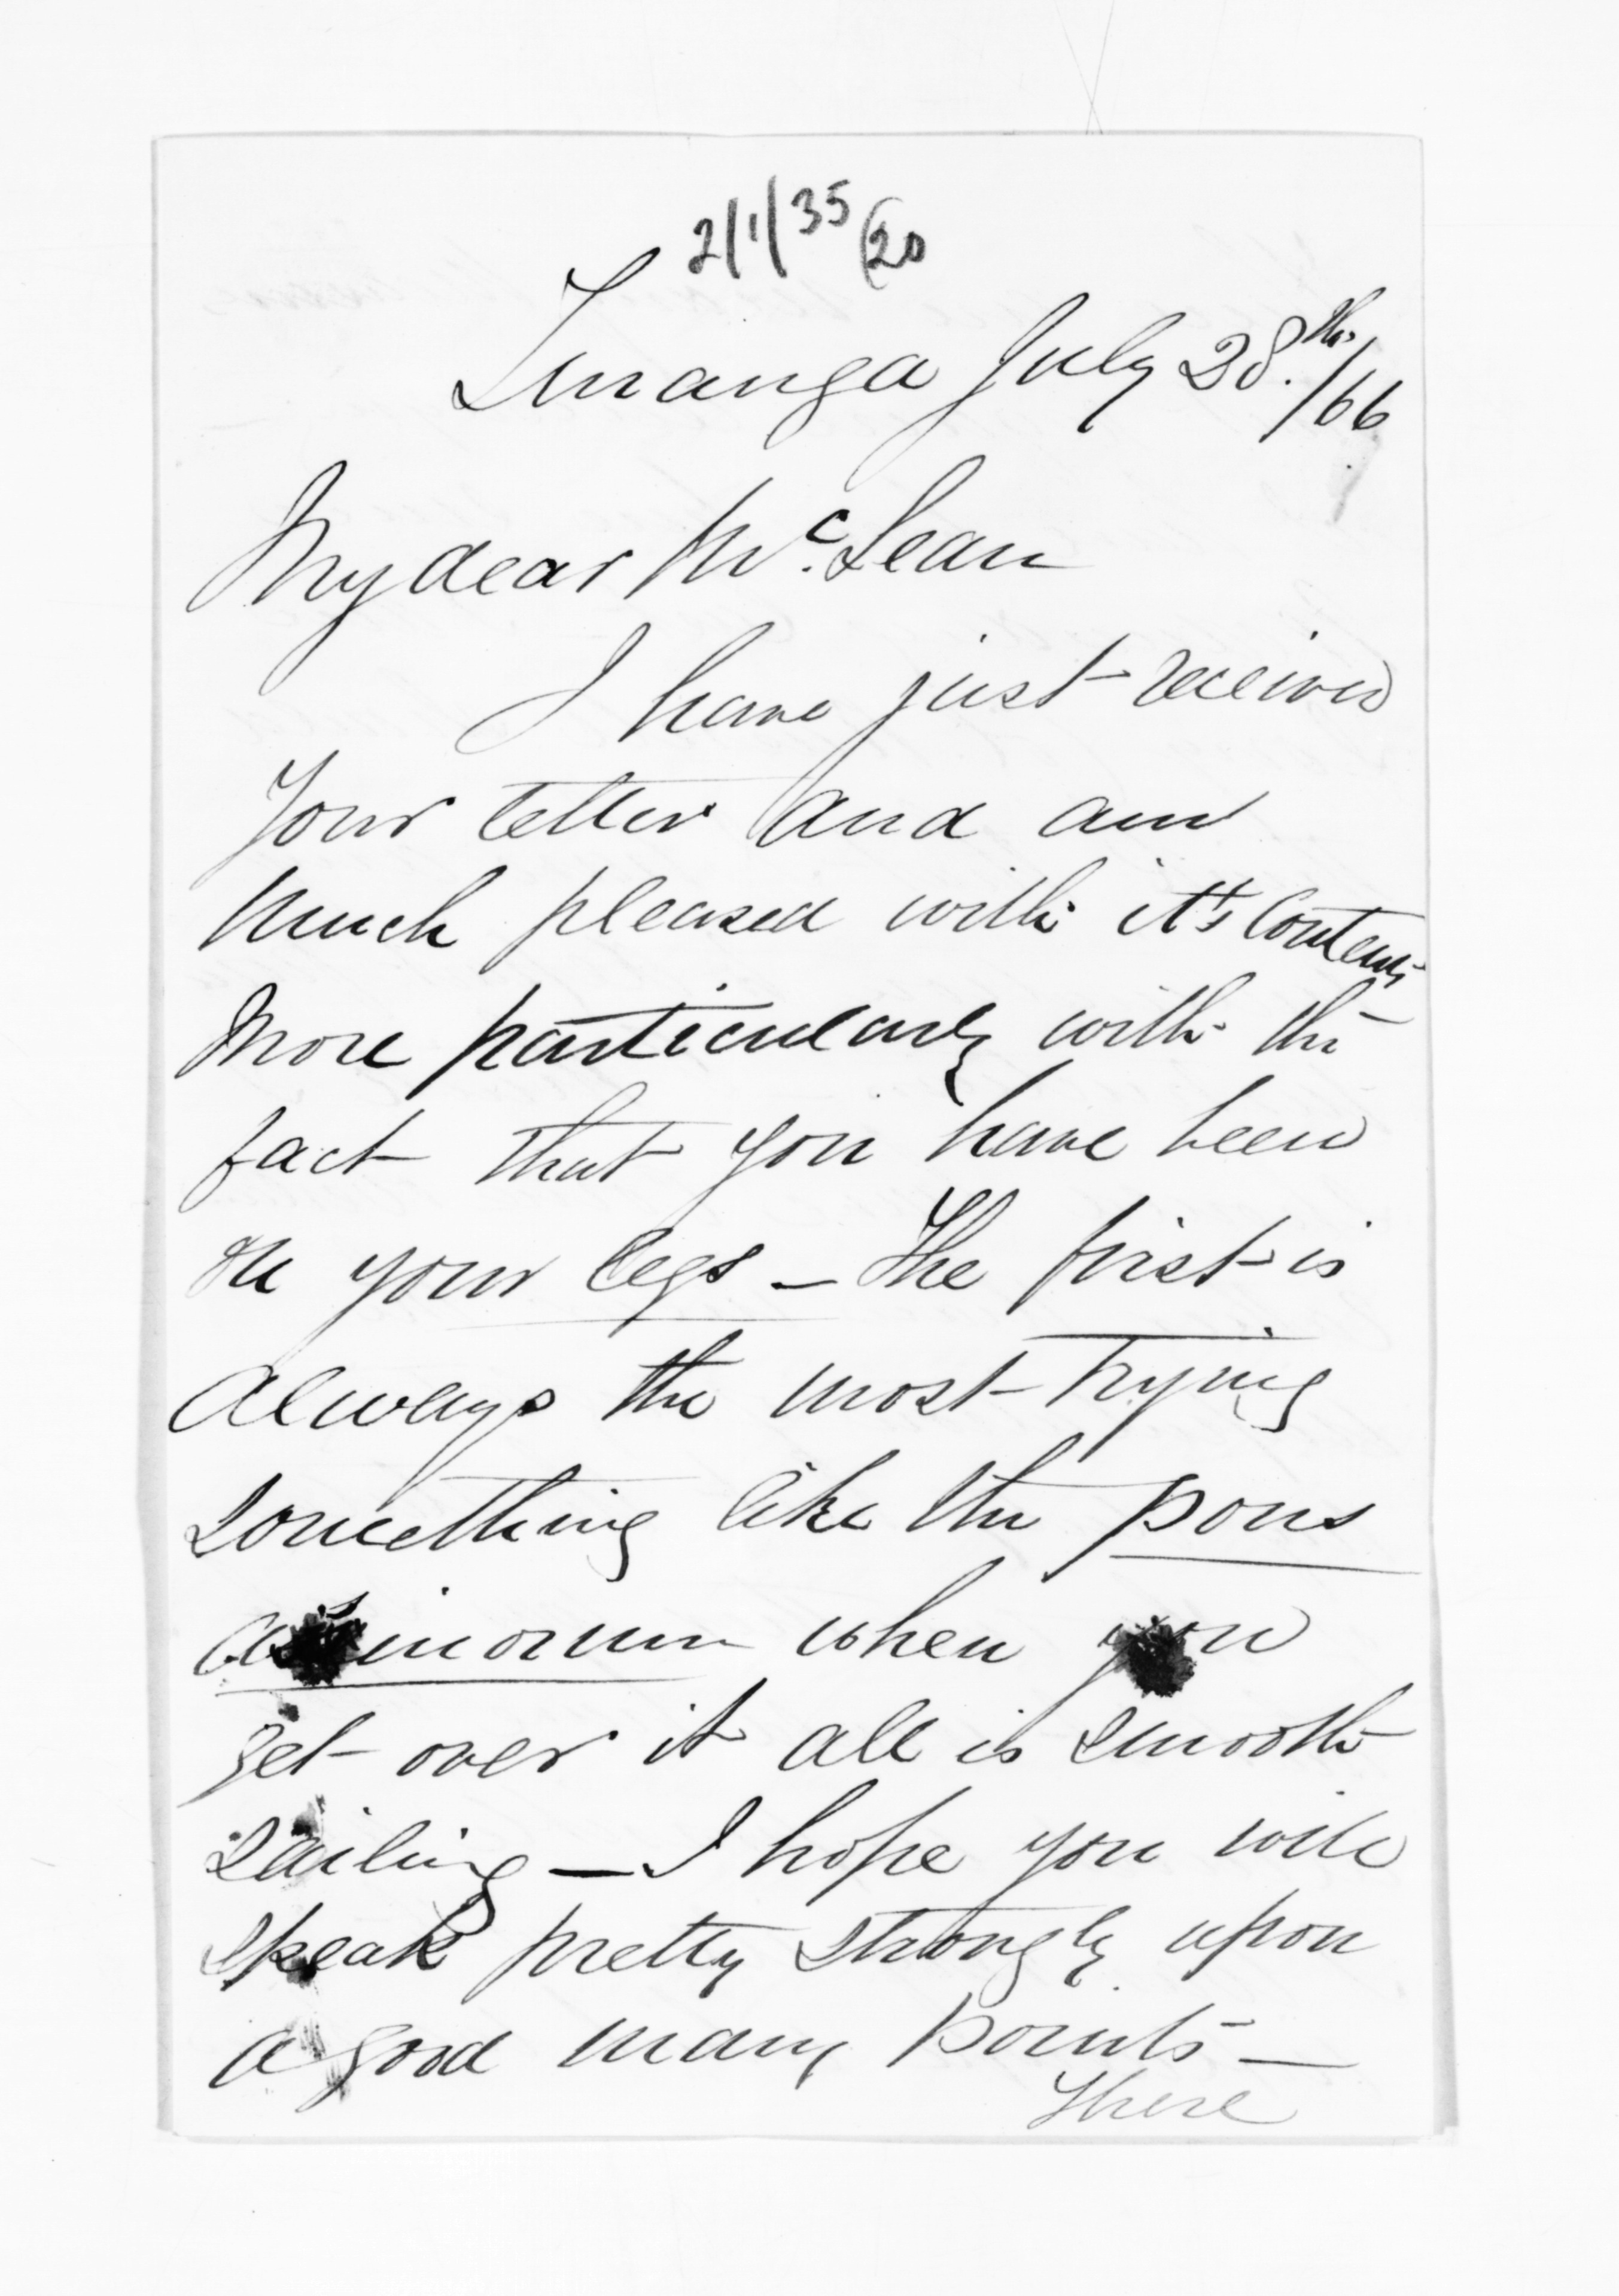 2/1/35 (20
Turanga July 28.th/66
My dear Mc.Lean
I have just received
Your letter and am
Much pleased with it's Contents
More particularly with the
fact that you have been
on your legs - The first is
Always the most trying
Something like the pons
assinorum when you
get over it all is smooth
Sailing - I hope you will
speak pretty strongly upon
a good many points -
There